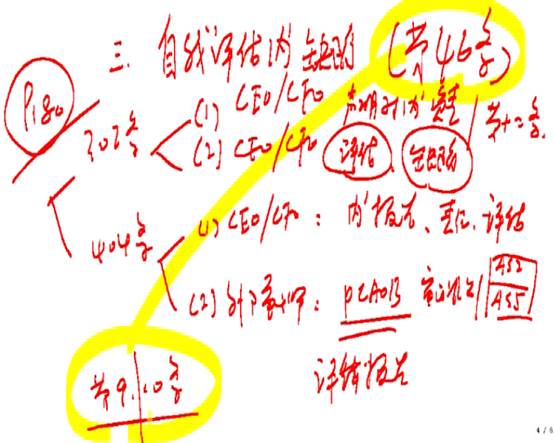 三. 自我评估内控缺陷 (第46条)
P180
302条
(1) CEO/CFO 声明对内控 责任 / 第十二条
(2) CEO/CFO 评估、缺陷
404条
(1) CEO/CFO: 内控报告、责任、评估
(2) 外部审计师: PCAOB 审计准则 AS2
AS5
第9.10条 评估报告
4 / 6